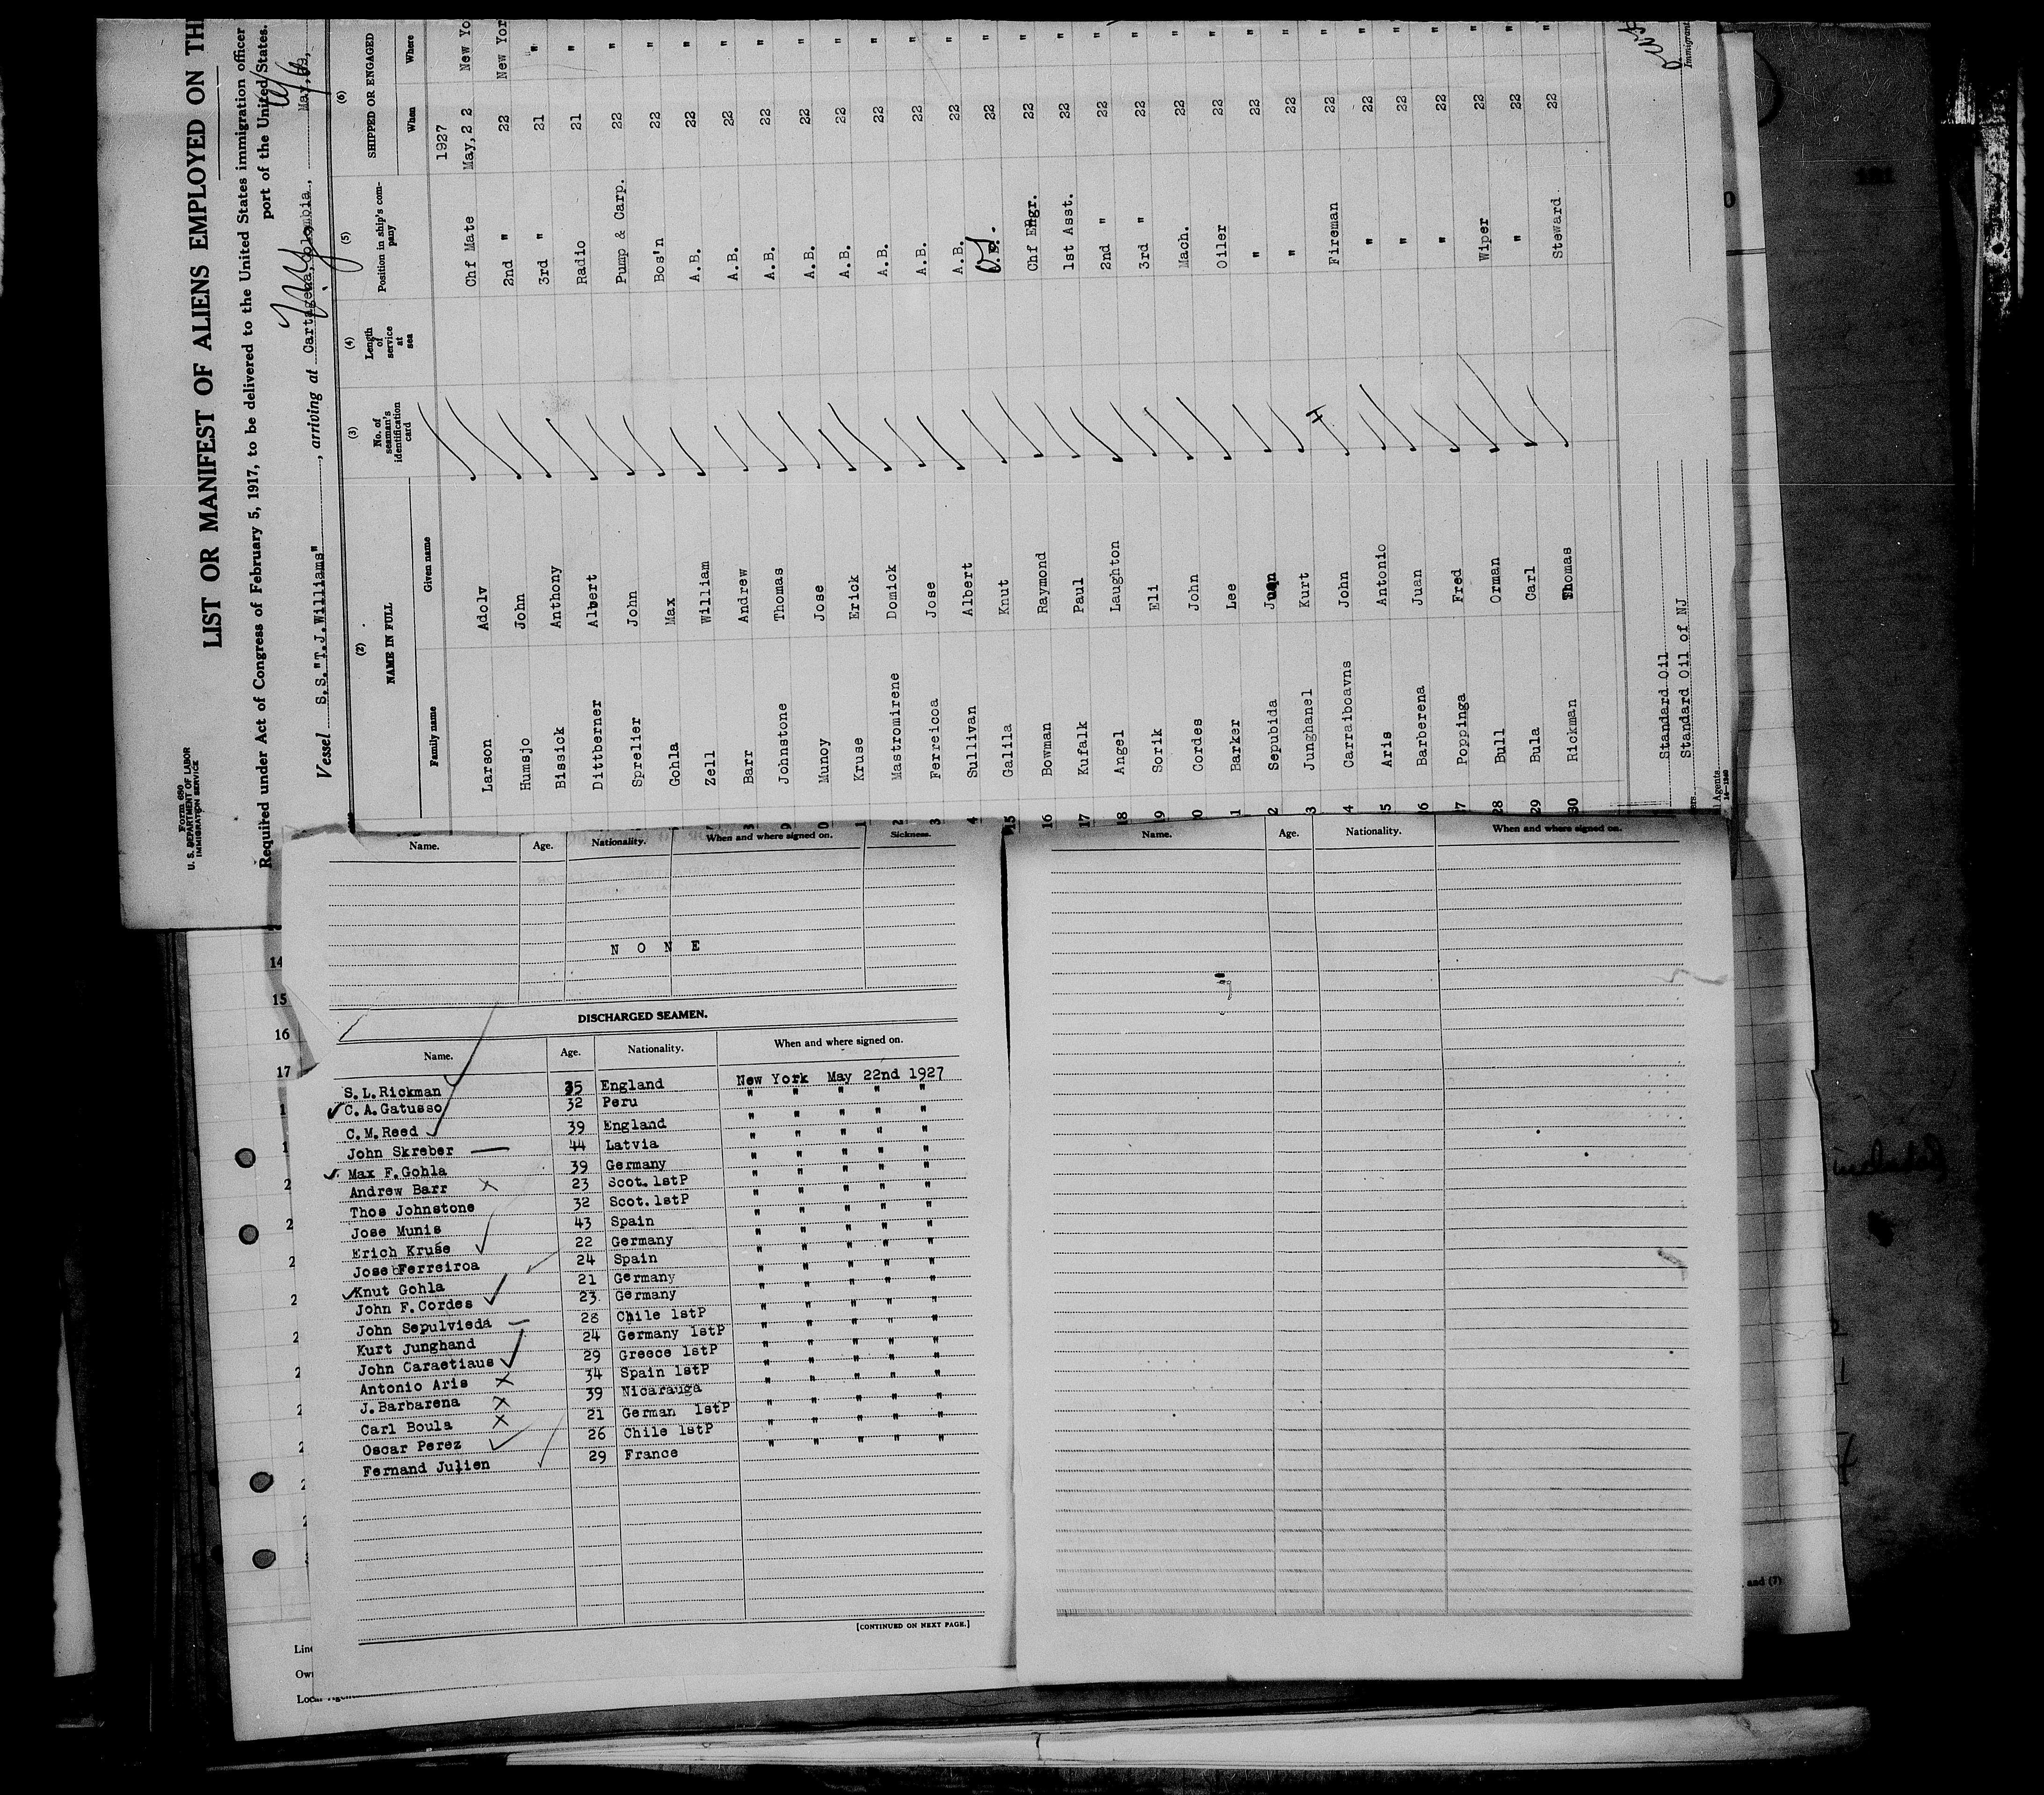 Form 680
U. S. DEPARTMENT OF LABOR
IMMIGRATION SERVICE
LIST OR MANIFEST OF ALIENS EMPLOYED ON TH
Required under Act of Congress of February 5, 1917, to be delivered to the United States immigration officer
port of the United States.
Vessel S.S."T.J.Williams" , arriving at Cartagena, Colombia , May,
(2) (3) (4) (5) (6)
NAME IN FULL No. of seaman's identification card Length of service at sea Position in ship's company SHIPPED OR ENGAGED
Family name Given name When Where
1927
Larson Adolv Chf Mate May,2 2 New Yo
Humsjo John 2nd " 22 New Yor
Bissick Anthony 3rd " 21 "
Dittberner Albert Radio 21 "
Sprelier John Pump & Carp. 22 "
Gohla Max Bos'n 22 "
Zell William A.B. 22 "
Barr Andrew A.B. 22 "
9 Johnstone Thomas A.B. 22 "
0 Munoy Jose A.B. 22 "
1 Kruse Erick A.B. 22 "
2 Mastromirene Domick A.B. 22 "
3 Ferreicoa Jose A.B. 22 "
4 Sullivan Albert A.B. 22 "
15 Galila Knut O.S. 22 "
16 Bowman Raymond Chf Engr. 22 "
17 Kufalk Paul 1st Asst. 22 "
18 Angel Laughton 2nd " 22 "
19 Sorik Eli 3rd " 22 "
0 Cordes John Mach. 22 "
1 Barker Lee Oiler 22 "
2 Sepubida Juan " 22 "
3 Junghanel Kurt " 22 "
4 Carraiboavns John Fireman 22 "
5 Aris Antonio " 22 "
6 Barberena Juan " 22 "
7 Poppinga Fred " 22 "
28 Bull Orman Wiper 22 "
29 Bula Carl " 22 "
30 Rickman Thomas Steward 22 "
Standard Oil
Standard Oil of NJ
Agents
14—1240
Immigrant
Name. Age. Nationality. When and where signed on. Sickness.
N O N E
DISCHARGED SEAMEN.
Name. Age. Nationality. When and where signed on.
S.L.Rickman 35 England New York May 22nd 1927
C.A.Gatusso 32 Peru " " " " "
C.M.Reed 39 England " " " " "
John Skreber 44 Latvia " " " " "
Max F.Gohla 39 Germany " " " " "
Andrew Barr 23 Scot.1stP " " " " "
Thos Johnstone 32 Scot.1stP " " " " "
Jose Munis 43 Spain " " " " "
Erich Kruse 22 Germany " " " " "
Jose Ferreiroa 24 Spain " " " " "
Knut Gohla 21 Germany " " " " "
John F.Cordes 23 Germany " " " " "
John Sepulvieda 28 Chile 1stP " " " " "
Kurt Junghand 24 Germany 1stP " " " " "
John Caraetiaus 29 Greece 1stP " " " " "
Antonio Aris 34 Spain 1stP " " " " "
J.Barbarena 39 Nicarauga " " " " "
Carl Boula 21 German 1stP " " " " "
Oscar Perez 26 Chile 1stP " " " " "
Fernand Julien 29 France " " " " "
[CONTINUED ON NEXT PAGE.]
Name. Age. Nationality. When and where signed on.
14
15
16
17
Line
Own
Local Agent
and (7)
included